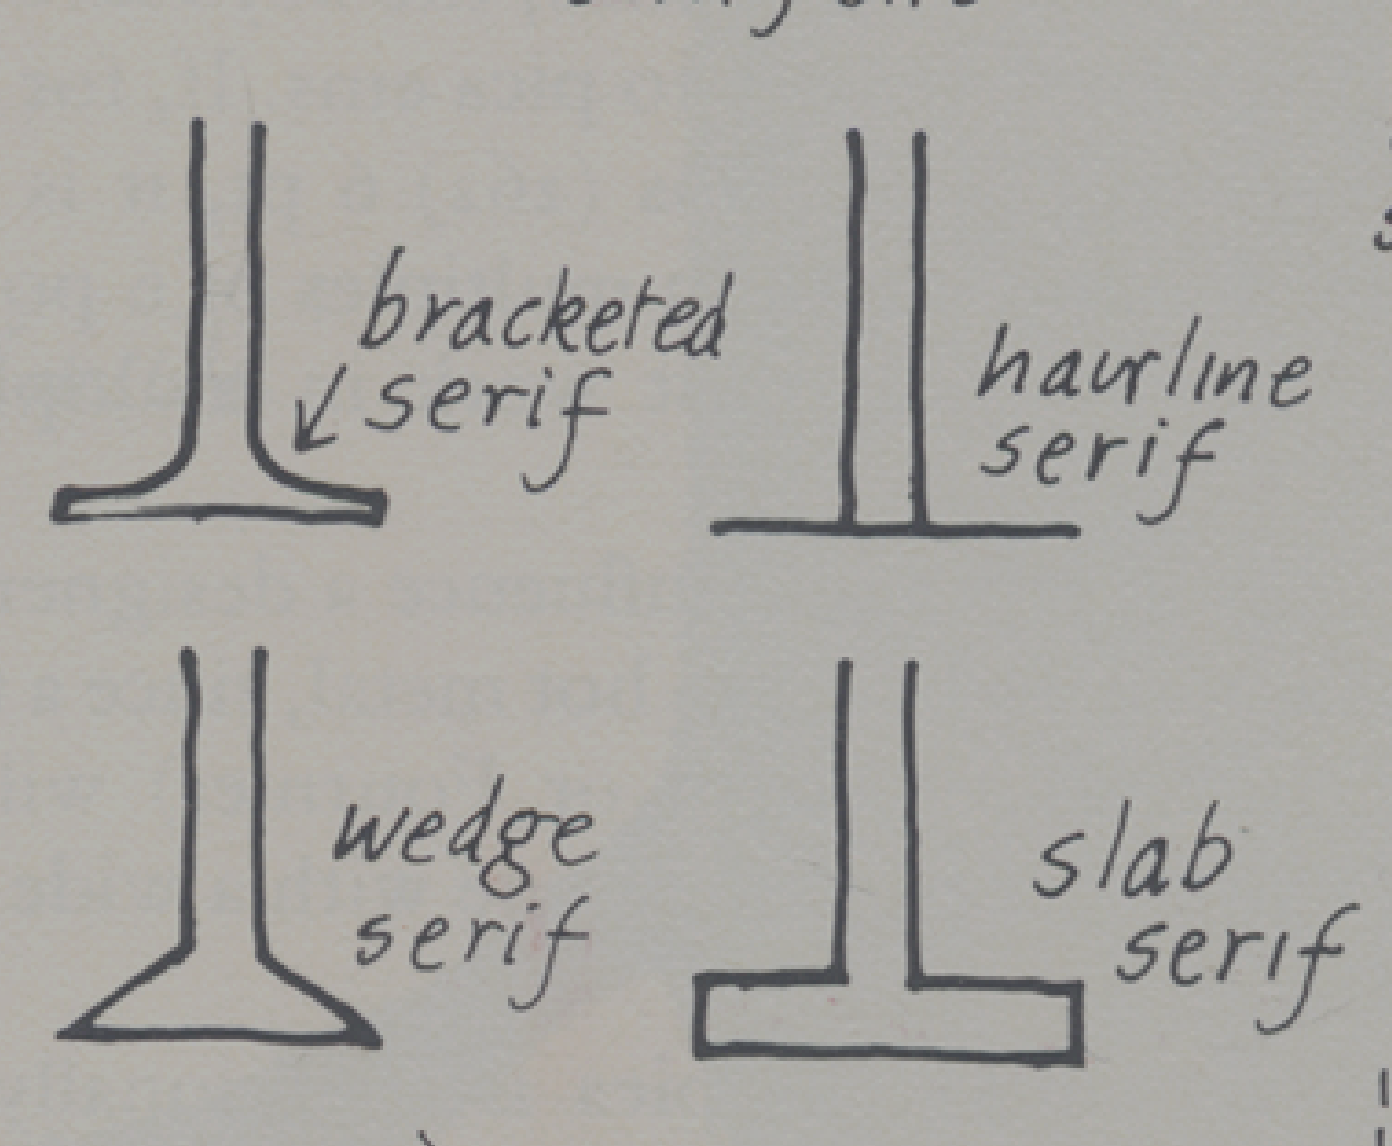 bracketed
serif
hairline
serif
wedge
serif
slab
serif